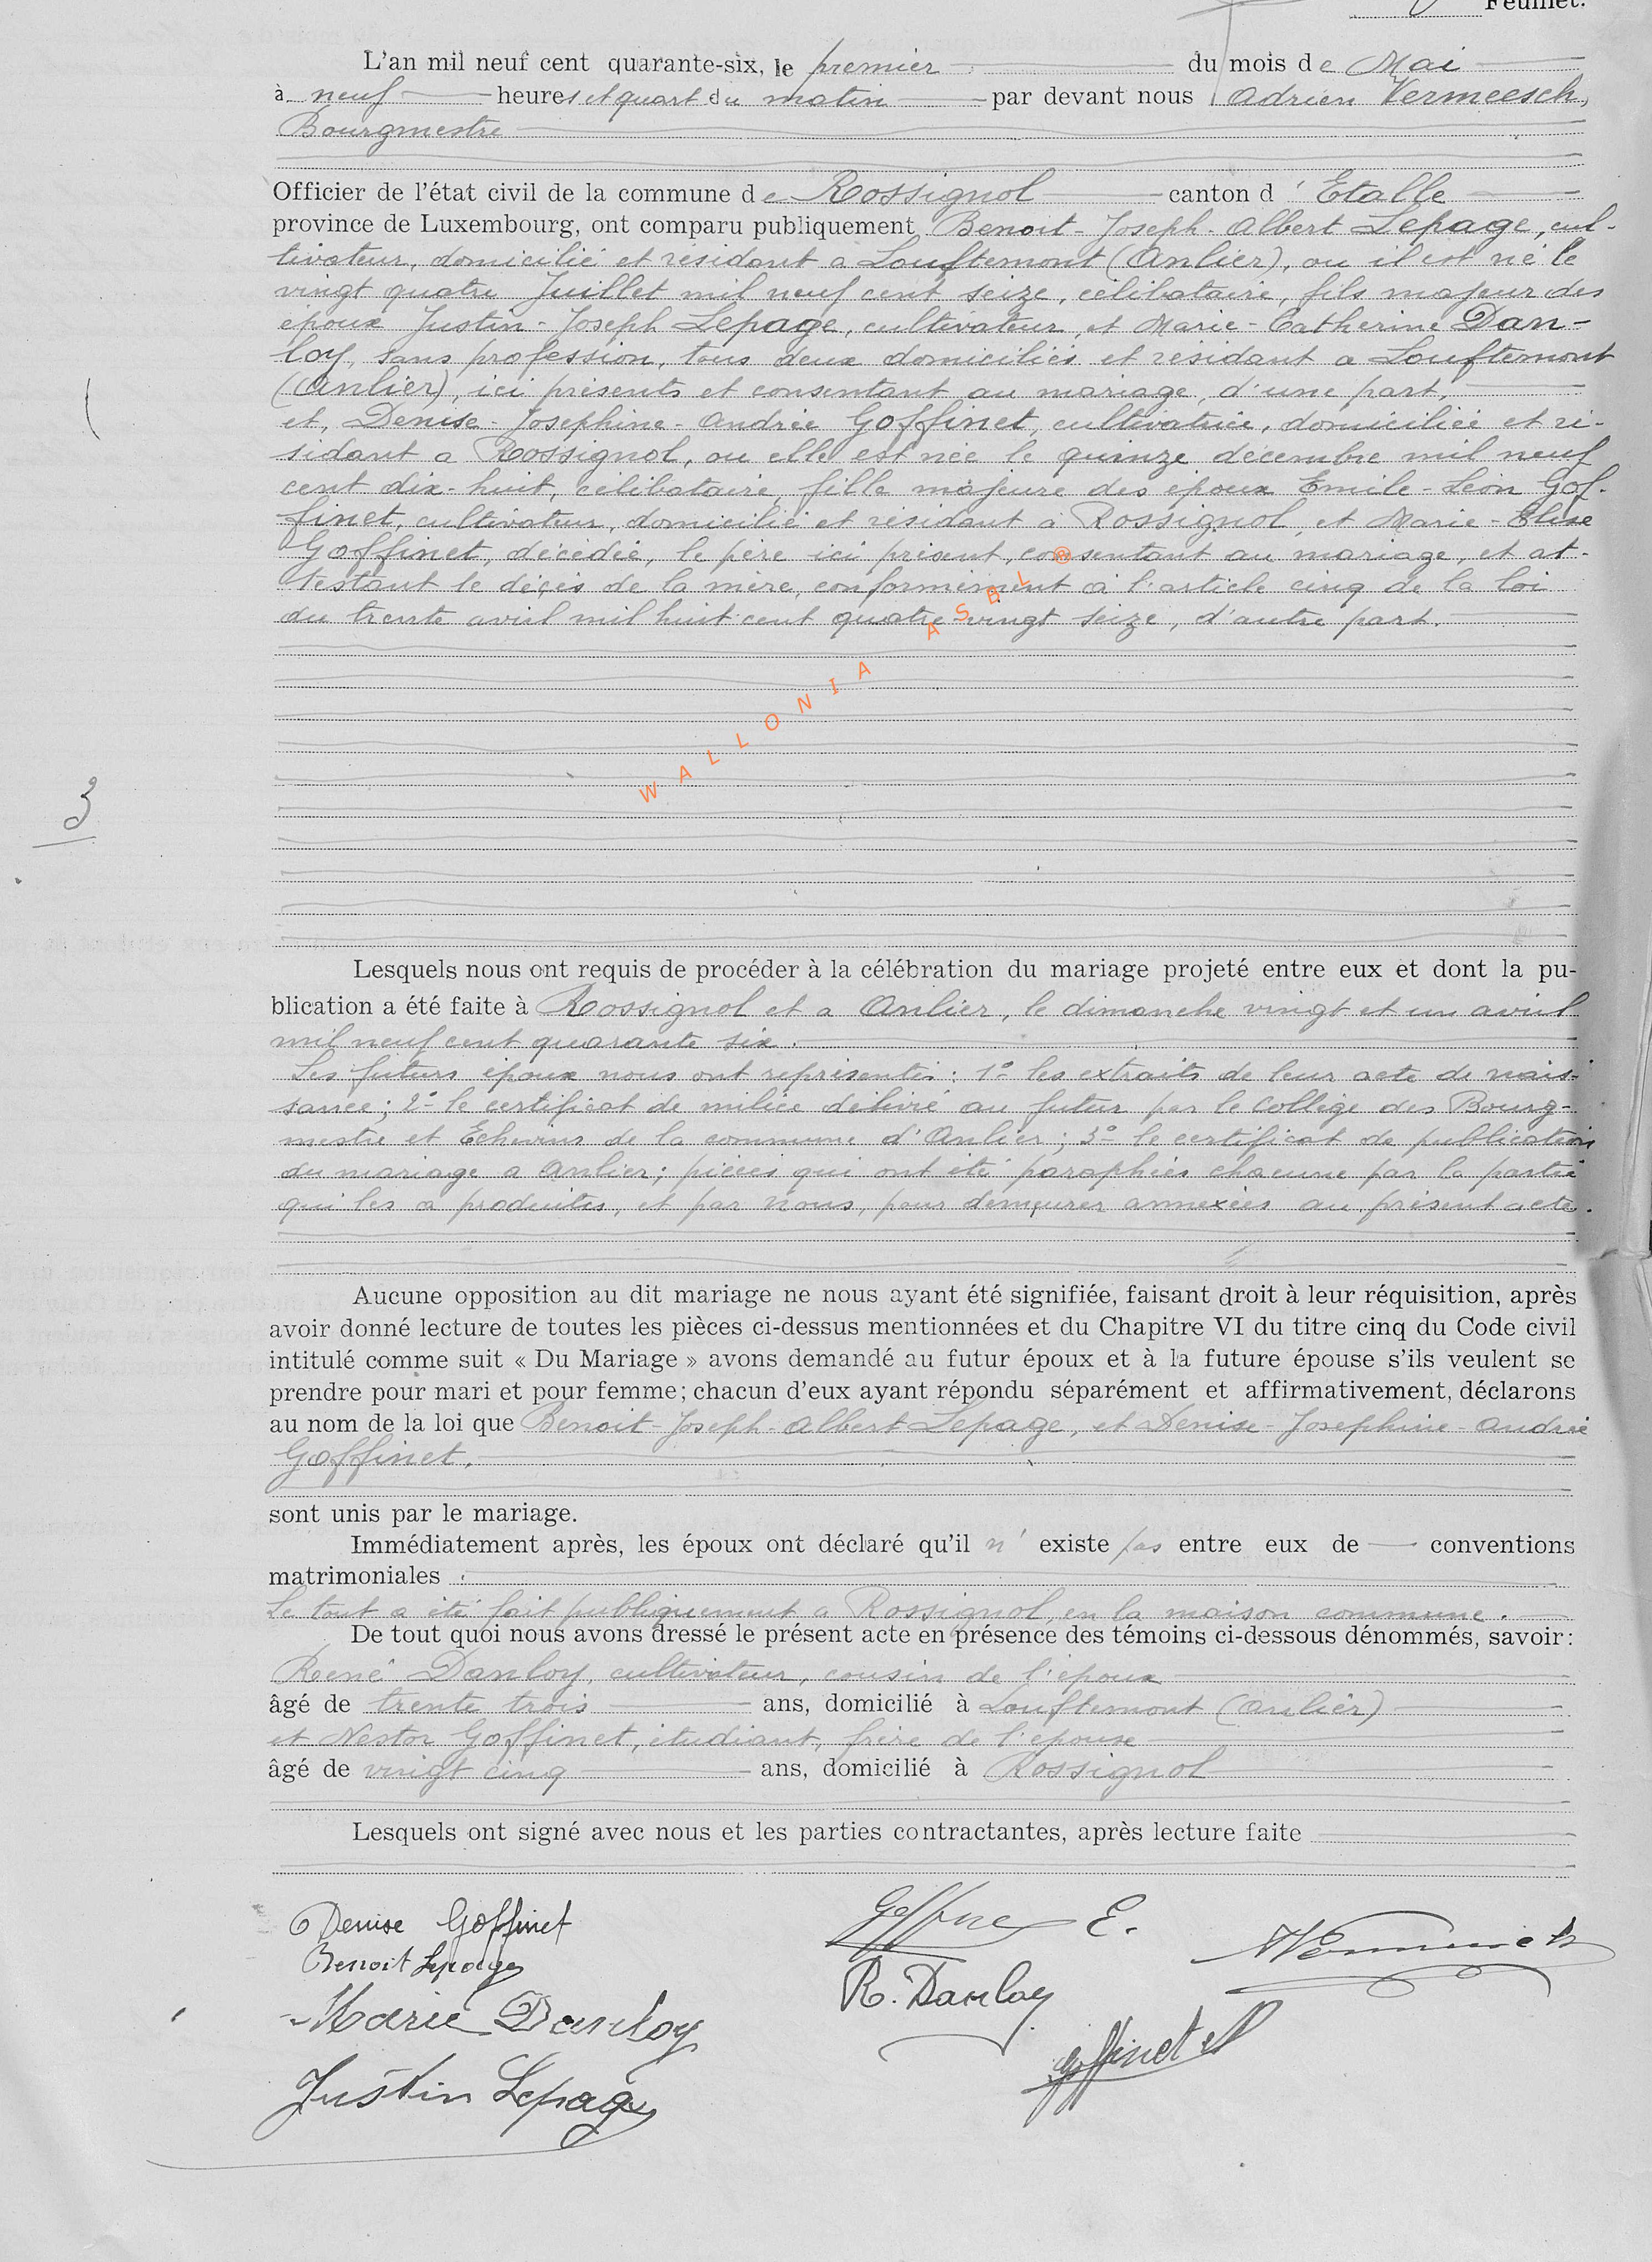 Feuillet.
L'an mil neuf cent quarante-six, le premier du mois de Mai
à neuf heures et quart du matin par devant nous Adrien Vermeesch,
Bourgmestre
Officier de l'état civil de la commune de Rossignol canton d'Etalle
province de Luxembourg, ont comparu publiquement Benoit-Joseph-Albert Lepage, cul-
tivateur, domicilié et résidant à Louftemont (Anlier), où il est né le
vingt quatre Juillet mil neuf cent seize, célibataire, fils majeur des
époux Justin-Joseph Lepage, cultivateur, et Marie-Catherine Dan-
loy, sans profession, tous deux domiciliés et résidant à Louftemont
(Anlier), ici présents et consentant au mariage, d'une part,
et, Denise-Josephine-Andrée Goffinet, cultivatrice, domiciliée et ré-
sidant à Rossignol, où elle est née le quinze décembre mil neuf
cent dix-huit, célibataire, fille majeure des époux Emile-Léon Gof-
finet, cultivateur, domicilié et résidant à Rossignol, et Marie-Elise
Goffinet, décédée, le père ici présent, consentant au mariage, et at-
testant le décès de la mère, conformément à l'article cinq de la loi
du trente avril mil huit cent quatre-vingt seize, d'autre part.
WALLONIA ASBL ®
3
Lesquels nous ont requis de procéder à la célébration du mariage projeté entre eux et dont la pu-
blication a été faite à Rossignol et à Anlier, le dimanche vingt et un avril
mil neuf cent quarante six.
Les futurs époux nous ont représentés : 1° les extraits de leur acte de nais-
sance ; 2° le certificat de milice délivré au futur par le Collège des Bourg-
mestre et Echevins de la commune d'Anlier ; 3° le certificat de publication
du mariage à Anlier ; pièces qui ont été paraphées chacune par la partie
qui les a produites, et par nous, pour demeurer annexées au présent acte.
Aucune opposition au dit mariage ne nous ayant été signifiée, faisant droit à leur réquisition, après
avoir donné lecture de toutes les pièces ci-dessus mentionnées et du Chapitre VI du titre cinq du Code civil
intitulé comme suit « Du Mariage » avons demandé au futur époux et à la future épouse s'ils veulent se
prendre pour mari et pour femme ; chacun d'eux ayant répondu séparément et affirmativement, déclarons
au nom de la loi que Benoit-Joseph-Albert Lepage, et Denise-Josephine-Andrée
Goffinet,
sont unis par le mariage.
Immédiatement après, les époux ont déclaré qu'il n'existe pas entre eux de conventions
matrimoniales.
Le tout a été fait publiquement à Rossignol, en la maison commune.
De tout quoi nous avons dressé le présent acte en présence des témoins ci-dessous dénommés, savoir :
René Danloy, cultivateur, cousin de l'époux
âgé de trente trois ans, domicilié à Louftemont (Anlier)
et Nestor Goffinet, étudiant, frère de l'épouse
âgé de vingt cinq ans, domicilié à Rossignol
Lesquels ont signé avec nous et les parties contractantes, après lecture faite
Denise Goffinet
Benoit Lepage
Marie Danloy
Justin Lepage
Goffinet E.
R. Danloy
Goffinet N
AVermeesch